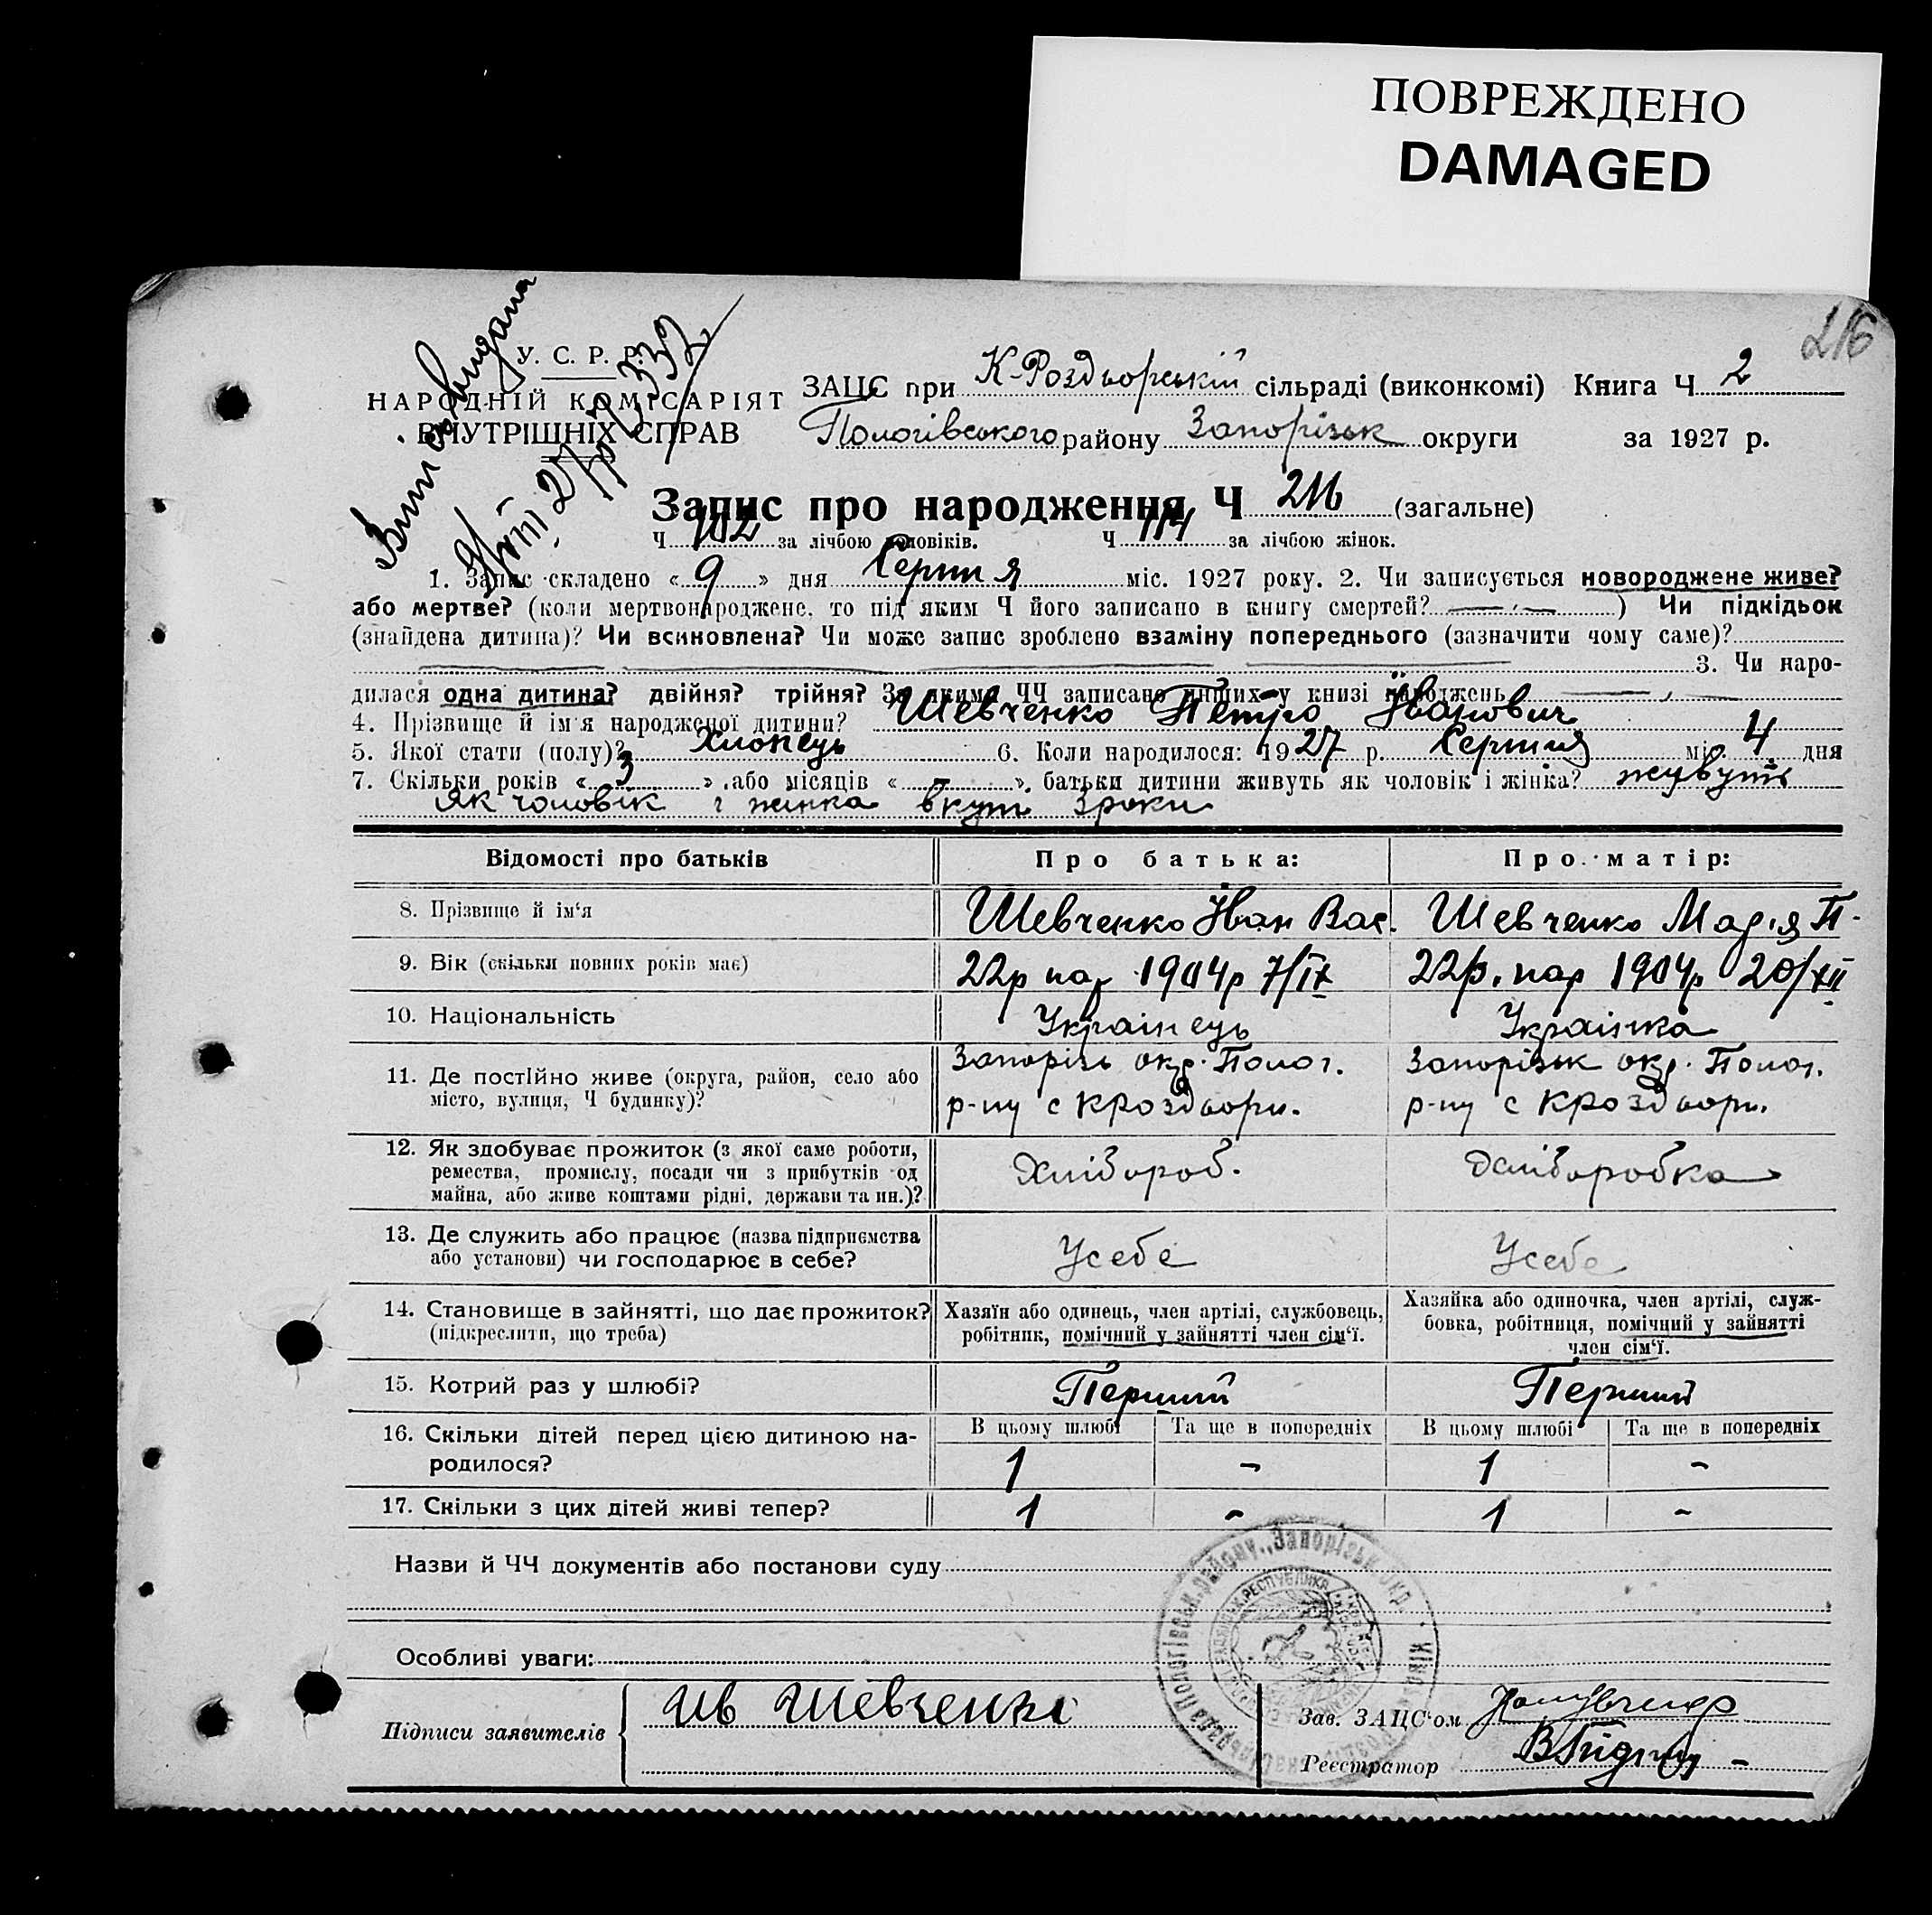 ПОВРЕЖДЕНО
DAMAGED
216
Виписъ видана
9/VIII 27р № 332
У. С. Р. Р.
НАРОДНІЙ КОМІСАРІЯТ
ВНУТРІШНІХ СПРАВ
ЗАЦС при К-Роздборській сільраді (виконкомі) Книга Ч 2
Пологівського району Запорізьк округи за 1927 р.
Запис про народження Ч 216 (загальне)
Ч 102 за лічбою чоловіків. Ч 114 за лічбою жінок.
1. Запис складено «9» дня Серпня міс. 1927 року. 2. Чи записується новороджене живе?
або мертве? (коли мертвонароджене, то під яким Ч його записано в книгу смертей? — ) Чи підкідьок
(знайдена дитина)? Чи всиновлена? Чи може запис зроблено взаміну попереднього (зазначити чому саме)?
3. Чи наро-
дилася одна дитина? двійня? трійня? За якими ЧЧ записано инших у книзі народжень —
4. Прізвище й ім'я народженої дитини? Шевченко Петро Іванович
5. Якої стати (полу)? Хлопець 6. Коли народилося: 1927 р. Серпня міс. 4 дня
7. Скільки років «3» або місяців « - » батьки дитини живуть як чоловік і жінка? живуть
як чоловік і жінка вкупі 3 роки
Відомості про батьків Про батька: Про матір:
8. Прізвище й ім'я Шевченко Іван Вас. Шевченко Марія П-
9. Вік (скільки повних років має) 22р нар 1904р 7/IX 22р. нар 1904р 20/XII
10. Національність Українець Українка
11. Де постійно живе (округа, район, село або місто, вулиця, Ч будинку)?
Запорізь окр. Полог. р-ну с КРоздвори.
Запорізьк окр. Полог. р-ну с КРоздвори.
12. Як здобуває прожиток (з якої саме роботи,
ремества, промислу, посади чи з прибутків од
майна, або живе коштами рідні, держави та ин.)?
Хлібороб. Хліборобка
13. Де служить або працює (назва підприємства
або установи) чи господарює в себе?
Усебе Усебе
14. Становище в зайнятті, що дає прожиток?
(підкреслити, що треба)
Хазяїн або одинець, член артілі, службовець,
робітник, помічний у зайнятті член сім'ї.
Хазяйка або одиночка, член артілі, служ-
бовка, робітниця, помічний у зайнятті
член сім'ї.
15. Котрий раз у шлюбі? Перший Перший
16. Скільки дітей перед цією дитиною на-
родилося?
В цьому шлюбі Та ще в попередніх В цьому шлюбі Та ще в попередніх
1 - 1 -
17. Скільки з цих дітей живі тепер? 1 - 1 -
Назви й ЧЧ документів або постанови суду
Особливі уваги:
Підписи заявителів Ив Шевченко
Зав. ЗАЦС'ом
Реєстратор